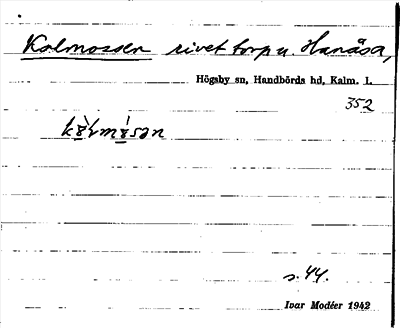 Kolmossen rivet torp u. Hanåsa,
Högsby sn, Handbörds hd, Kalm. l.
352
s. 44.
Ivar Modéer 1942